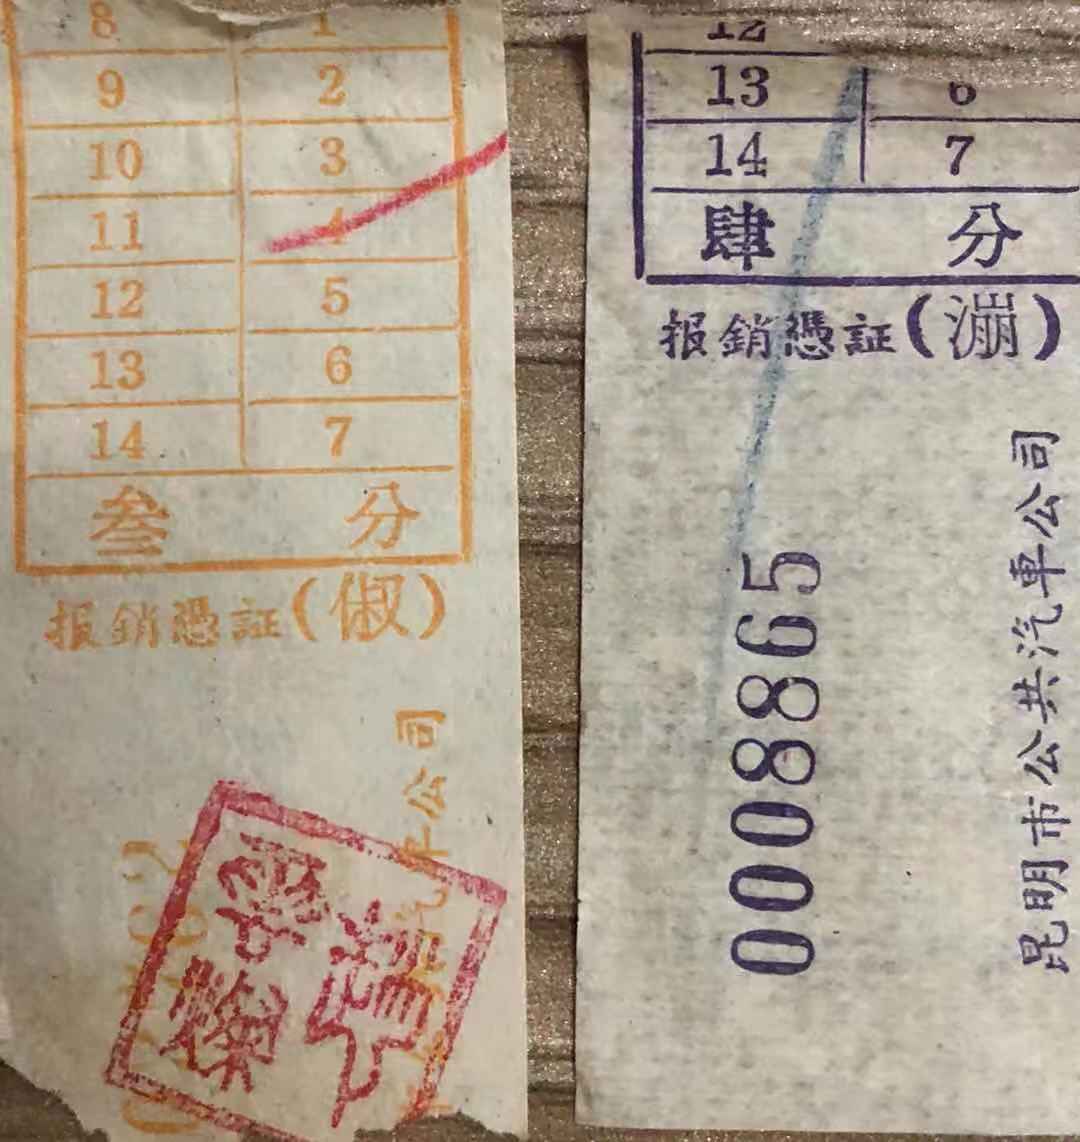 8 1
9 2
10 3
11 4
12 5
13 6
14 7
叁 分
报銷憑証(俶)
公司
12
13 6
14 7
肆 分
报銷憑証(漰)
0008865
昆明市公共汽車公司